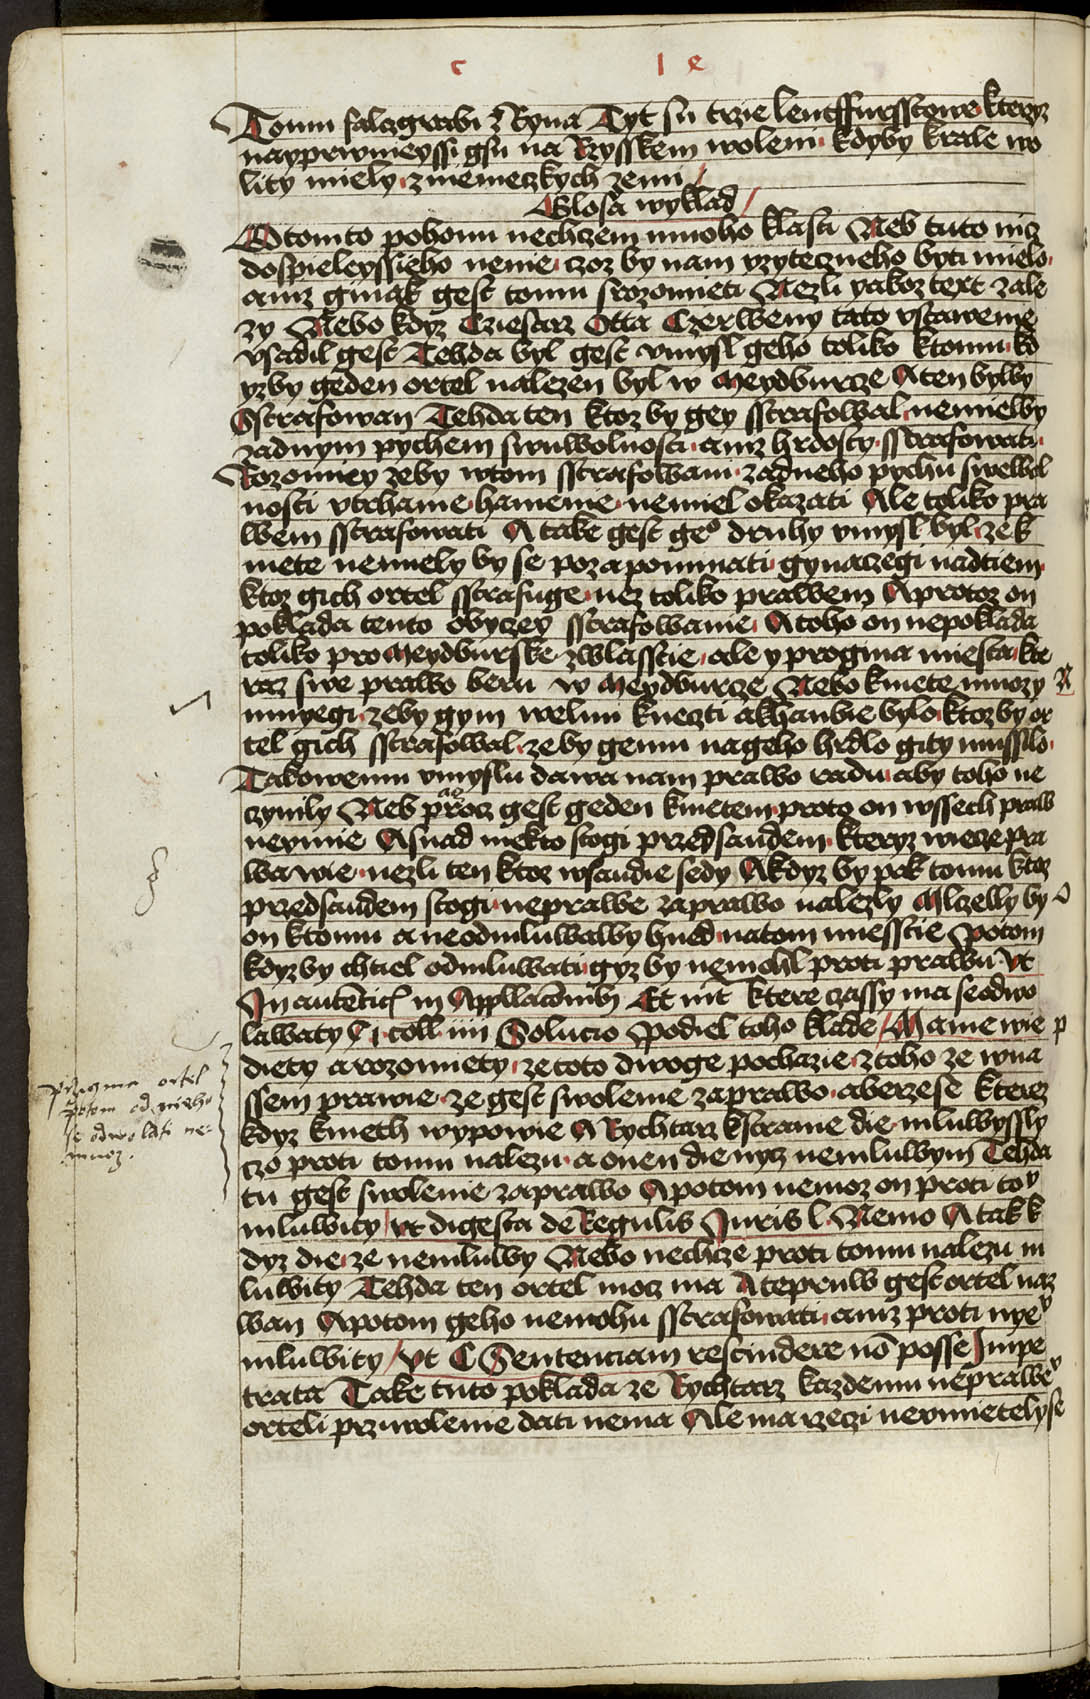 c l e
Tomu falczgrabi z Ryna Tyt su trzie lentffursstowe kteryz
nayprwnieyssi gsu na Rzysskem woleni kdyby krale wo
lity miely z niemeczkych zemi
Glosa wyklad
O tomto pohonu nechczem mnoho klasti Neb tuto nicz
dospieleyssieho nenie czoz by nam vzyteczneho byti mielo
aniz ginak gest tomu srozomieti Nezli yakoz text zale
zy Nebo kdyz Cziesarz Otta Czerweny tato vstawenie
vsadil gest Tehda byl gest vmysl geho toliko ktomu kd
yzby geden ortel nalezen byl w Meydburcze A ten bylby
Sstrafowan Tehda ten ktoz by gey sstrafowal nemielby
zadnym pychem swuwolnosti aniz hrdosty sstrafowati
Rozomiey zeby wtom sstrafowani zadneho pychu swewol
nosti vtrhanie hanienie nemiel okazati Ale toliko pra
wem sstrafowati A take gest geo druhy vmysl byl zek
mete nemiely by se pozapominati gynaczegi nadtiem
ktoz gich ortel sstrafuge nez toliko prawem A protoz on
poklada tento obyczey sstrafowanie A toho on nepoklada
toliko pro Meydburske zwlasstie ale y progina miesta kte
raz swe prawo beru w Meydburcze Nebo kmete mnozy
mnyegi zeby gym welmi knecti akhanbie bylo ktoz by or
tel gich sstrafowal zeby gemu nageho hrdlo gity mussilo
Takowemu vmyslu dawa nam prawo radu aby toho ne
czynily Neb acz procz gest geden kmetem proto on wssech praw
nevmie A snad niekto stogi przedsaudem kteryz wiecze pra
wa wie nezli ten ktoz wsaudie sedy A kdyz by pak tomu ktoz
przedsaudem stogi neprawe zaprawo nalezly Mlczelly by
on ktomu a neodmluwalby hned natom miesstie Potom
kdyzby chtiel odmluwati gyz by nemohl proti prawu Vt
In autentic in Appllacionib Et nit ktere czassy ma seodwo
lawaty C i coll iiii Solucio Podiel toho klade Mame wie
diety arozomiety zetoto dwoge pochazie ztoho ze wna
ssem prawie ze gest swolenie zaprawo aberzese kterez
kdyz kmeth wypowie A Rychtarz kstranie die mluwyssly
czo proti tomu nalezu a onen die nycz nemluwym Tehda
tu gest swolenie zaprawo A potom nemoz on proti toy
mluwity vt digesta de Regulis Juris l. Nemo A tak k
dyz die ze nemluwy Nebo nechcze proti tomu nalezu m
luwity Tehda ten ortel mocz ma A teprulw gest ortel naz
wan A potom geho nemohu sstrafowati aniz proti nye
mluwity vt C Sentenciam rescindere no posse Impe
trata Take tuto poklada ze Rychtarz kazdemu neprawe
orteli przwolenie dati nema Ale ma rzeczi nevmietelyse
Przigma ortel
potom od nieho
se odwolati ne-
moz.